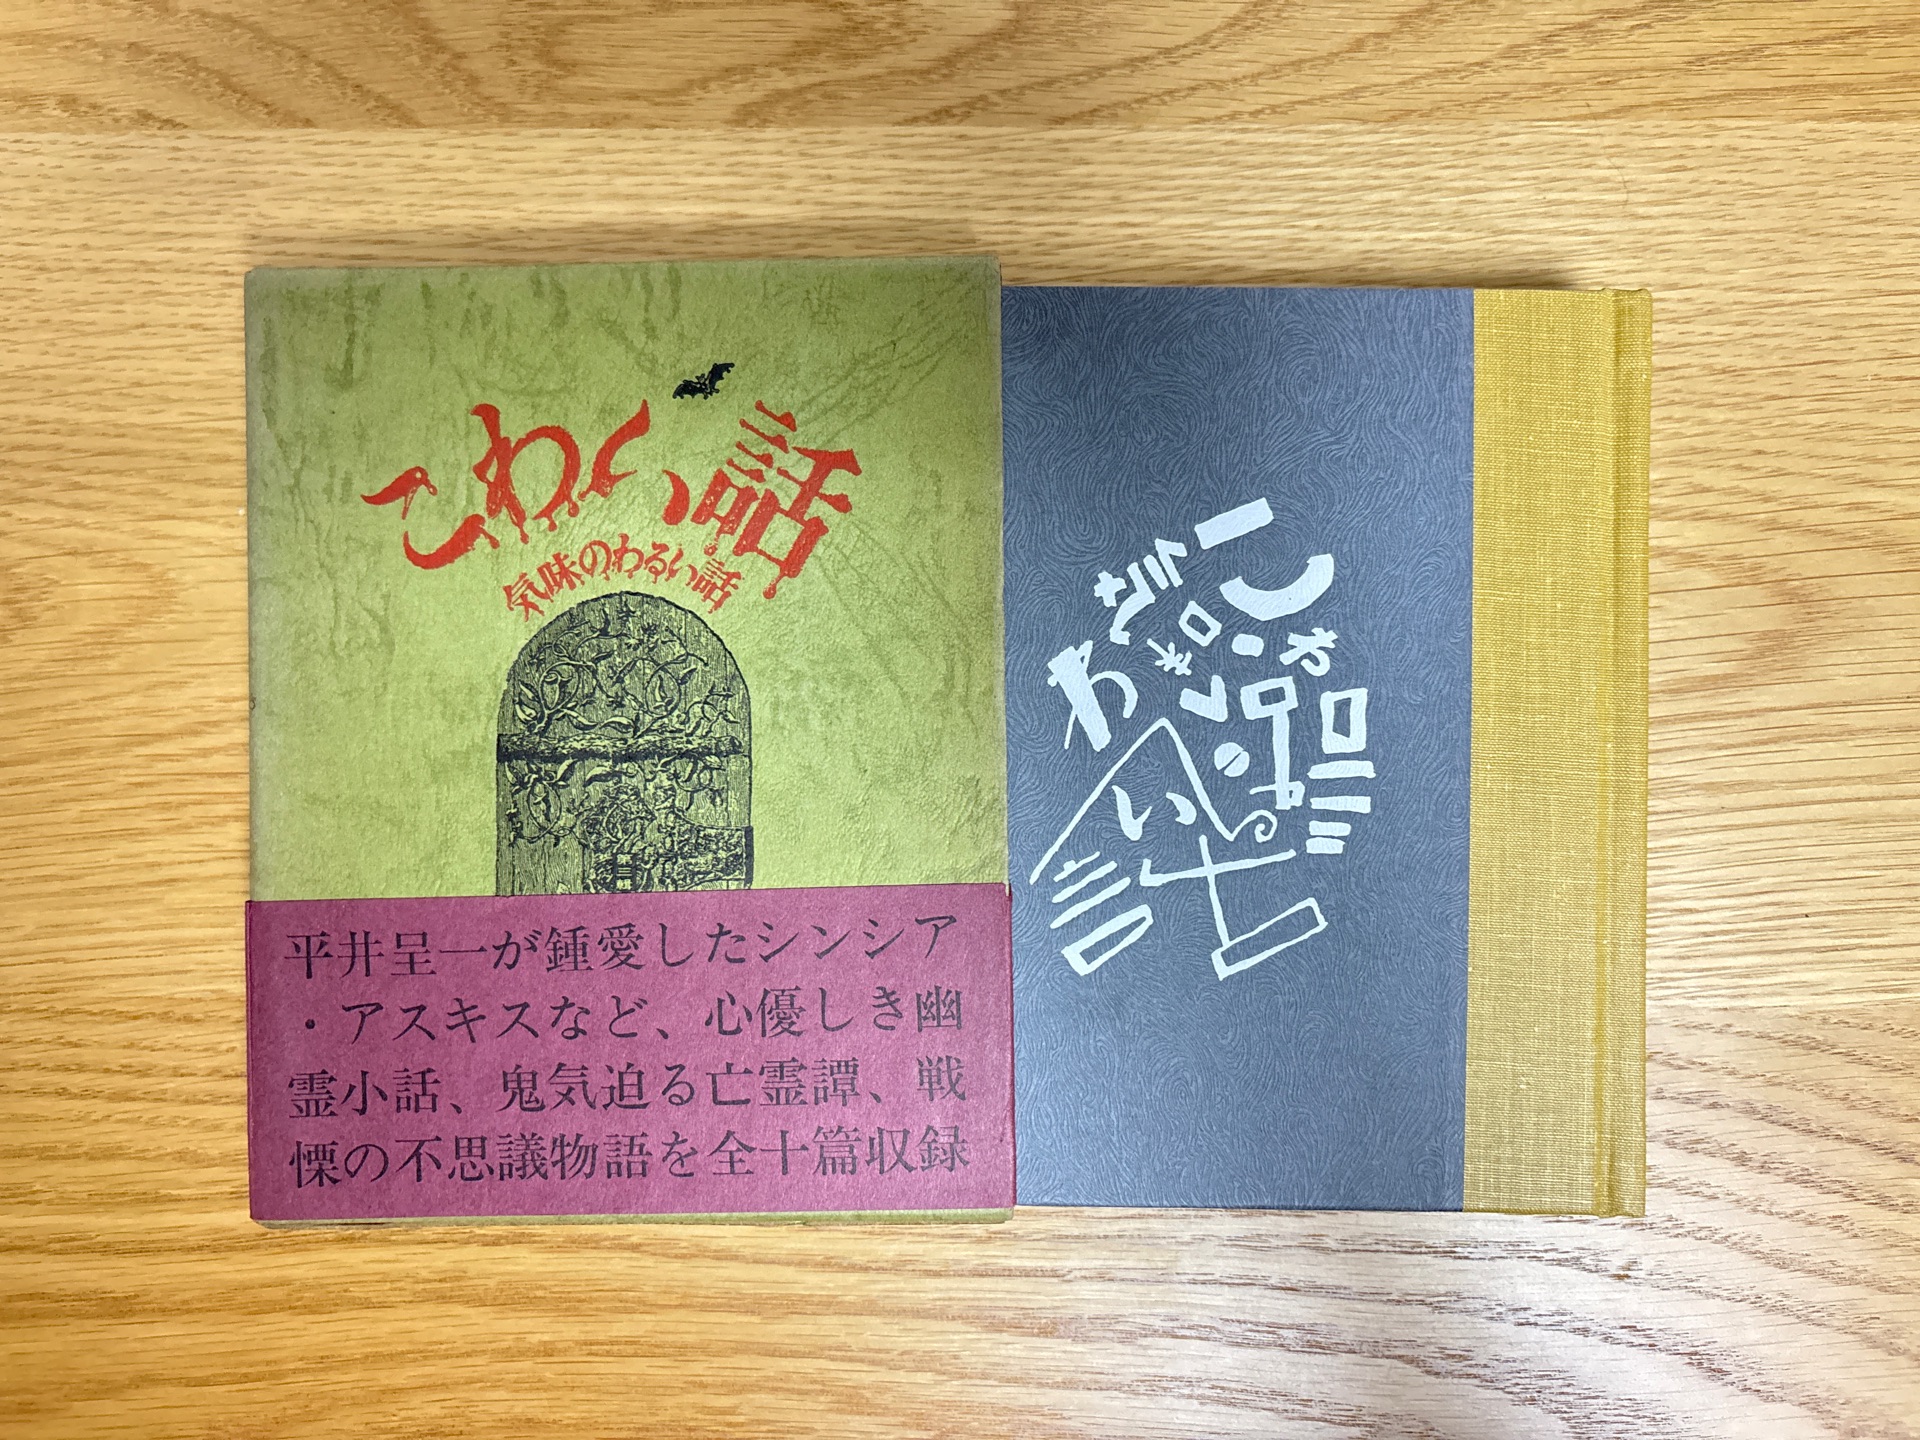 こわい話
気味のわるい話
第三輯
平井呈一が鍾愛したシンシア
・アスキスなど、心優しき幽
霊小話、鬼気迫る亡霊譚、戦
慄の不思議物語を全十篇収録